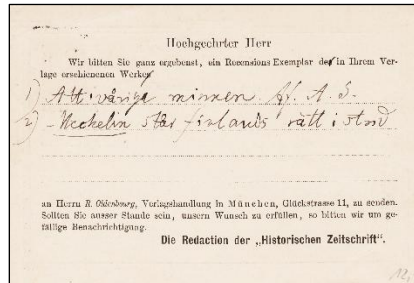 Hochgeehrter Herr
Wir bitten Sie ganz ergebenst, ein Recensions Exemplar der in Ihrem Ver-
lage erschienenen Werke
1) Att värja minnen Af A. S.
2) Mechelin står finlands rätt i stod
an Herrn R. Oldenbourg, Verlagshandlung in München, Glückstrasse 11, zu senden.
Sollten Sie ausser Stande sein, unsern Wunsch zu erfüllen, so bitten wir um ge-
fällige Benachrichtigung.
Die Redaction der „Historischen Zeitschrift".
12,